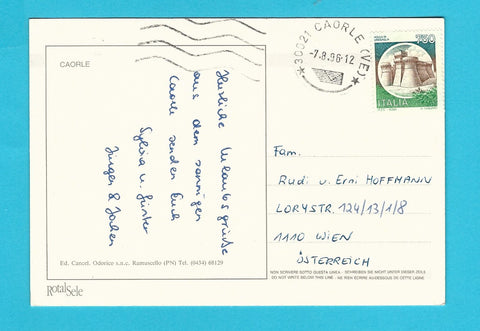 CAORLE
Herzliche Urlaubsgrüße
aus dem sonnigen
Caorle senden Euch
Sylvia u. Günter
Jürgen & Jochen
Ed. Cancl. Odorico s.n.c. Ramuscello (PN) Tel. (0434) 68129
RotalSele
30021 CAORLE (VE)
-7.8.96-12
750
ITALIA
Fam.
Rudi u. Erni HOFFMANN
LORYSTR. 124/13/1/8
1110 WIEN
ÖSTERREICH
NON SCRIVERE SOTTO QUESTA LINEA - SCHREIBEN SIE NICHT UNTER DIESER ZEILE
DO NOT WRITE BELOW THIS LINE - NE RIEN ECRIRE AU-DESSOUS DE CETTE LIGNE